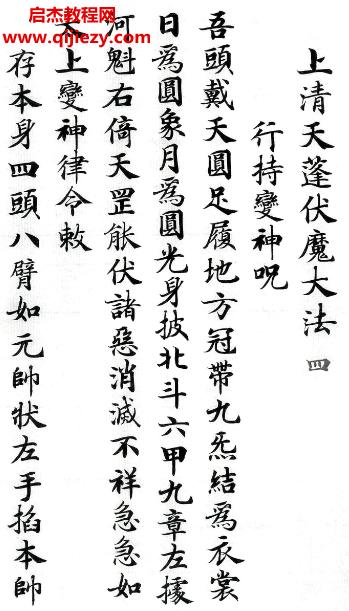 启杰教程网
www.qijiezy.com
上清天蓬伏魔大法 四
行持變神呪
吾頭戴天圓足履地方冠帶九炁結爲衣裳
日爲圓象月爲圓光身披北斗六甲九章左據
河魁右倚天罡能伏諸惡消滅不祥急急如
太上變神律令敕
存本身四頭八臂如元帥狀左手掐本帥